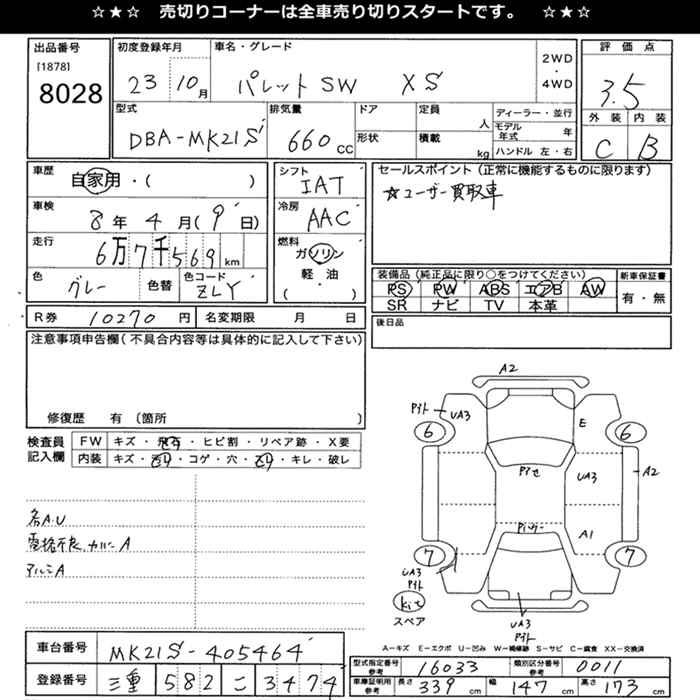 ☆★☆ 売切りコーナーは全車売り切りスタートです。 ☆★☆
出品番号
[1878]
8028
初度登録年月
23 10月
車名・グレード
パレットSW XS
2WD
・
4WD
評価点
3.5
外装 内装
C B
型式
DBA-MK21S
排気量
660 CC
ドア
形状
定員
人
積載
kg
ディーラー・並行
モデル年式 年
ハンドル 左・右
車歴
自家用・( )
車検
8年4月(9日)
走行
6万7千569km
色
グレー
色替
色コード
ZLY
シフト
IAT
冷房
AAC
燃料
ガソリン
軽・油
( )
セールスポイント(正常に機能するものに限ります)
☆ユーザー買取車
装備品(純正品に限り○をつけてください)
PS PW ABS エアB AW
SR ナビ TV 本革
新車保証書
有・無
R券 10270円
名変期限 月 日
後日品
注意事項申告欄(不具合内容等は具体的に記入して下さい)
修復歴 有(箇所 )
検査員
記入欄
FW キズ・飛石・ヒビ割・リペア跡・X要
内装 キズ・コゲ・穴・キレ・破レ
各A.U
電格不良、カバーA
アルミA
A2
UA3
E
6
6
UA3
A2
A1
7
7
UA3
kit
スペア
UA3
A-キズ E-エクボ U-凹み W-補修跡 S-サビ C-腐食 XX-交換済
車台番号
MK21S-405464
登録番号
三重 582 こ 3474
型式指定番号
参考
16033
類別区分番号
参考
0011
車庫証明用
参考
長さ 339cm 幅 147cm 高さ 173cm